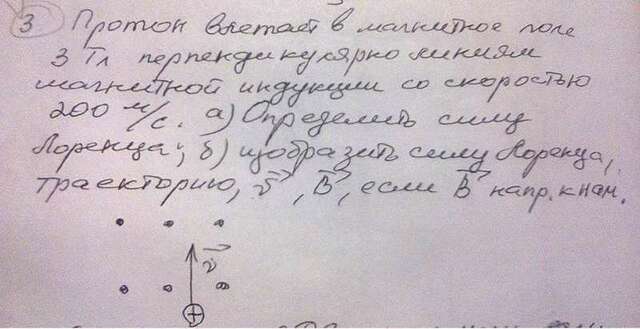 3 Протон влетает в магнитное поле
3 Тл перпендикулярно линиям
магнитной индукции со скоростью
200 м/с. а) Определить силу
Лоренца; б) изобразить силу Лоренца,
траекторию, v⃗, B⃗, если B⃗ напр. к нам.
v⃗
+